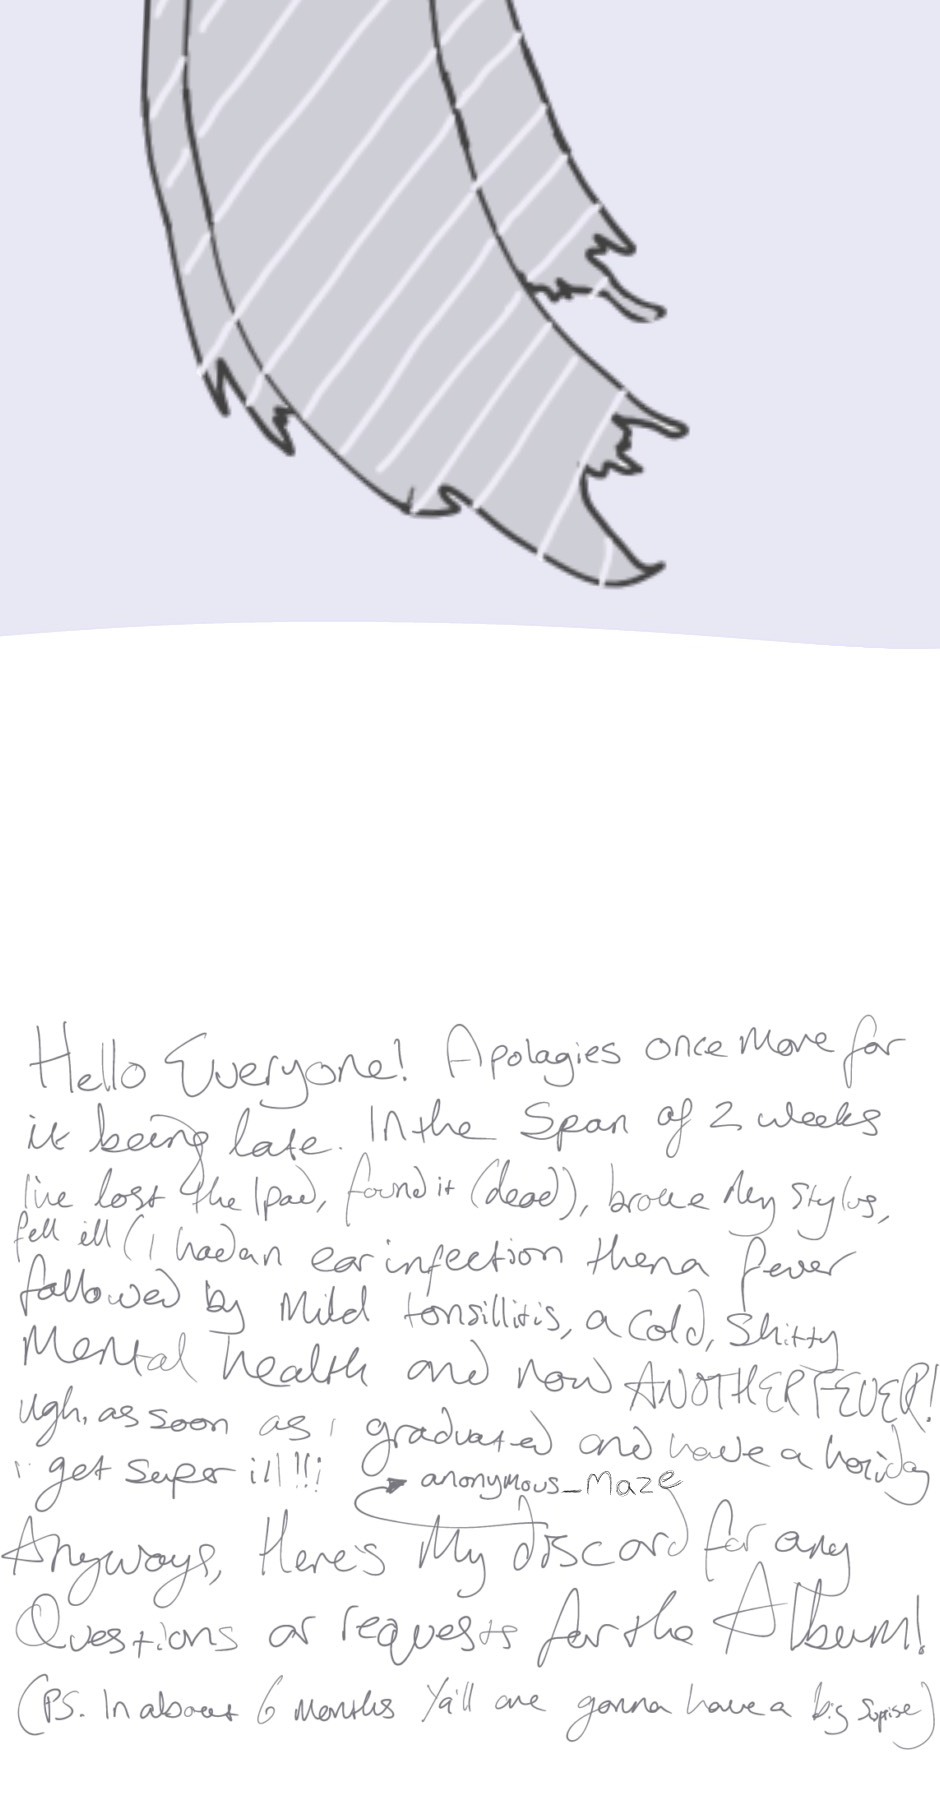 Hello Everyone! Apolagies once More for
it being late. In the Span of 2 weeks
I've lost the Ipad, found it (dead), broke My Stylus,
fell ill (I had an ear infection then a fever
followed by Mild tonsillitis, a Cold, Shitty
Mental health and now ANOTHER FEVER!
Ugh, as soon as I graduated and have a holiday
I get Super ill!!!
anonymous_Maze
Anyways, Here's My discord for any
Questions or requests for the Album!
(PS. In about 6 Months Ya'll are gonna have a big Suprise)